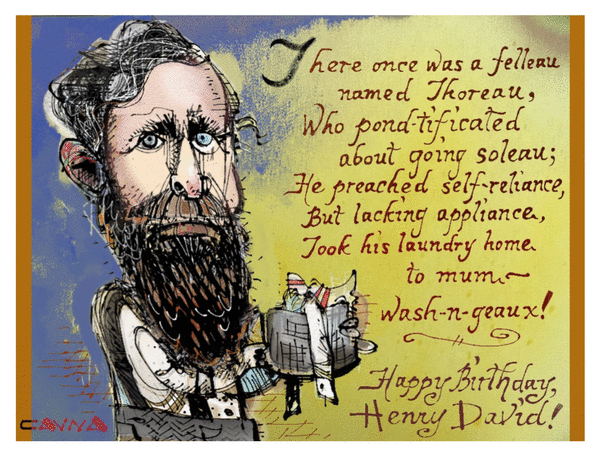 There once was a felleau
named Thoreau,
Who pond-tificated
about going soleau;
He preached self-reliance,
But lacking appliance,
Took his laundry home
to mum~
wash-n-geaux!
Happy Birthday,
Henry David!
CANNA